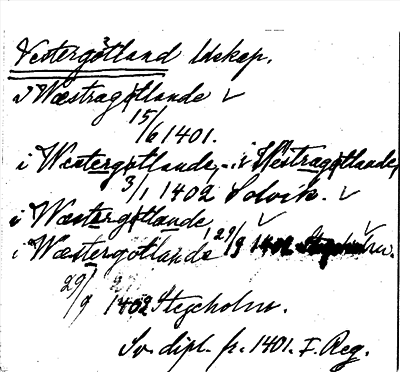 Vestergötland ldskap.
i Wæstragøtlande ✓
15/6 1401.
i Westergøtlande, - i Wéstragøtlande,
3/1 1402 Solvik. ✓
i Wæstergøtlande ✓
i Wæstergøtlande 29/9 1402
29/9 1402 Stegeholm.
Sv. dipl. fr. 1401. I. Reg.